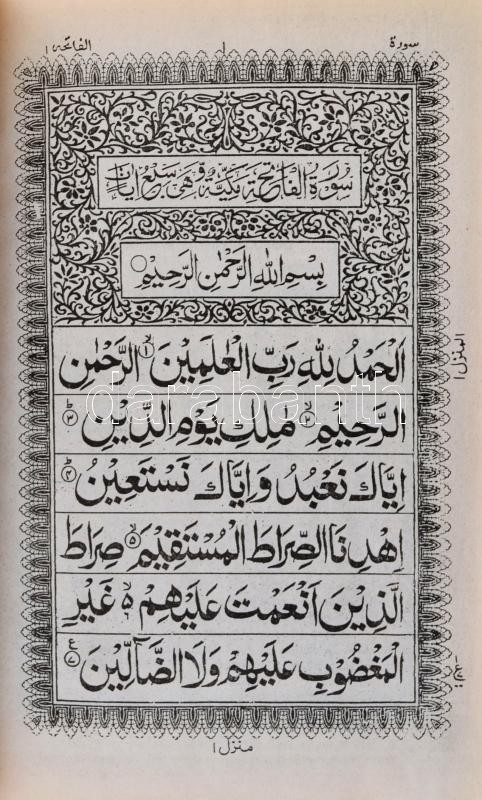 سورة ١ الفاتحة ١
سُورَةُ الْفَاتِحَةِ مَكِّيَّةٌ وَّهِيَ سَبْعُ اٰيَاتٍ
بِسْمِ اللّٰهِ الرَّحْمٰنِ الرَّحِيْمِ
اَلْحَمْدُ لِلّٰهِ رَبِّ الْعٰلَمِيْنَ ۙ﴿١﴾ الرَّحْمٰنِ
الرَّحِيْمِ ۙ﴿٢﴾ مٰلِكِ يَوْمِ الدِّيْنِ ؕ﴿٣﴾
darabanth
اِيَّاكَ نَعْبُدُ وَاِيَّاكَ نَسْتَعِيْنُ ؕ﴿٤﴾
اِهْدِنَا الصِّرَاطَ الْمُسْتَقِيْمَ ۙ﴿٥﴾ صِرَاطَ
الَّذِيْنَ اَنْعَمْتَ عَلَيْهِمْ ۙ۵ غَيْرِ
الْمَغْضُوْبِ عَلَيْهِمْ وَلَا الضَّآلِّيْنَ ﴿٧﴾ ع
المنزل ١
منزل ١